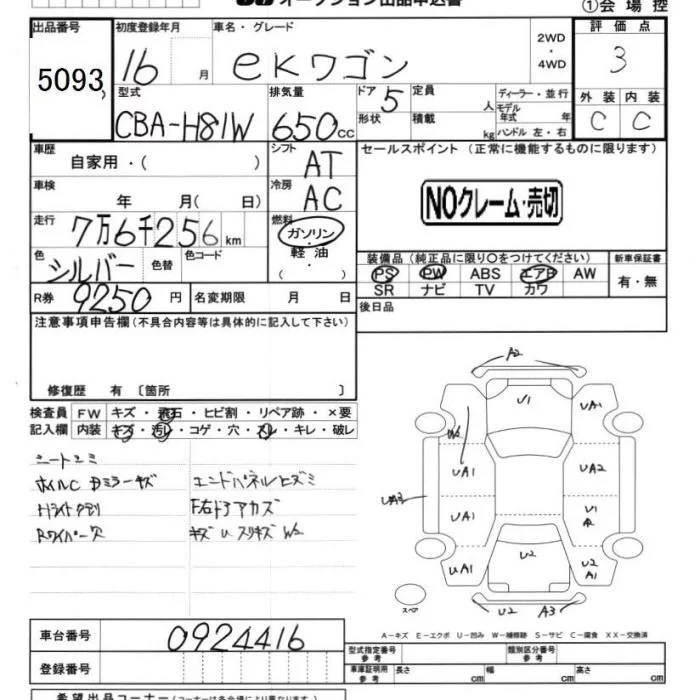 オークション出品申込書
①会場控
出品番号
5093
初度登録年月
16 月
車名・グレード
eKワゴン
2WD
・
4WD
評価点
3
型式
CBA-H81W
排気量
650cc
ドア
5
形状
定員
人
積載
kg
ディーラー・並行
モデル年式 年
ハンドル 左・右
外装
C
内装
C
車歴
自家用・( )
シフト
AT
セールスポイント (正常に機能するものに限ります)
車検
年 月( 日)
冷房
AC
NOクレーム・売切
走行
7万6千256km
燃料
ガソリン
・
軽油
・
( )
色
シルバー
色替
色コード
装備品(純正品に限り〇をつけてください)
PS PW ABS エアB AW
SR ナビ TV カワ
新車保証書
有・無
R券
9250円
名変期限 月 日
後日品
注意事項申告欄(不具合内容等は具体的に記入して下さい)
修復歴 有〔箇所 〕
検査員 FW キズ・飛石・ヒビ割・リペア跡・×要
記入欄 内装 キズ・汚レ・コゲ・穴・スレ・キレ・破レ
シートユミ
ホイルC Dミラーキズ エンドパネルヒズミ
Hライトクモリ
Rワイパー欠 キズ U スリキズ W2
A2
U1
UA1
W2
UA1
UA2
UA3
UA1
U1
A2
UA1
U2
U2
A1
スペア
U2 A3
A－キズ E－エクボ U－凹み W－補修跡 S－サビ C－腐食 XX－交換済
車台番号
0924416
型式指定番号
参考
類別区分番号
参考
登録番号
車庫証明用
参考
長さ cm
幅 cm
高さ cm
希望出品コーナー(コーナーは各会場により異なります)